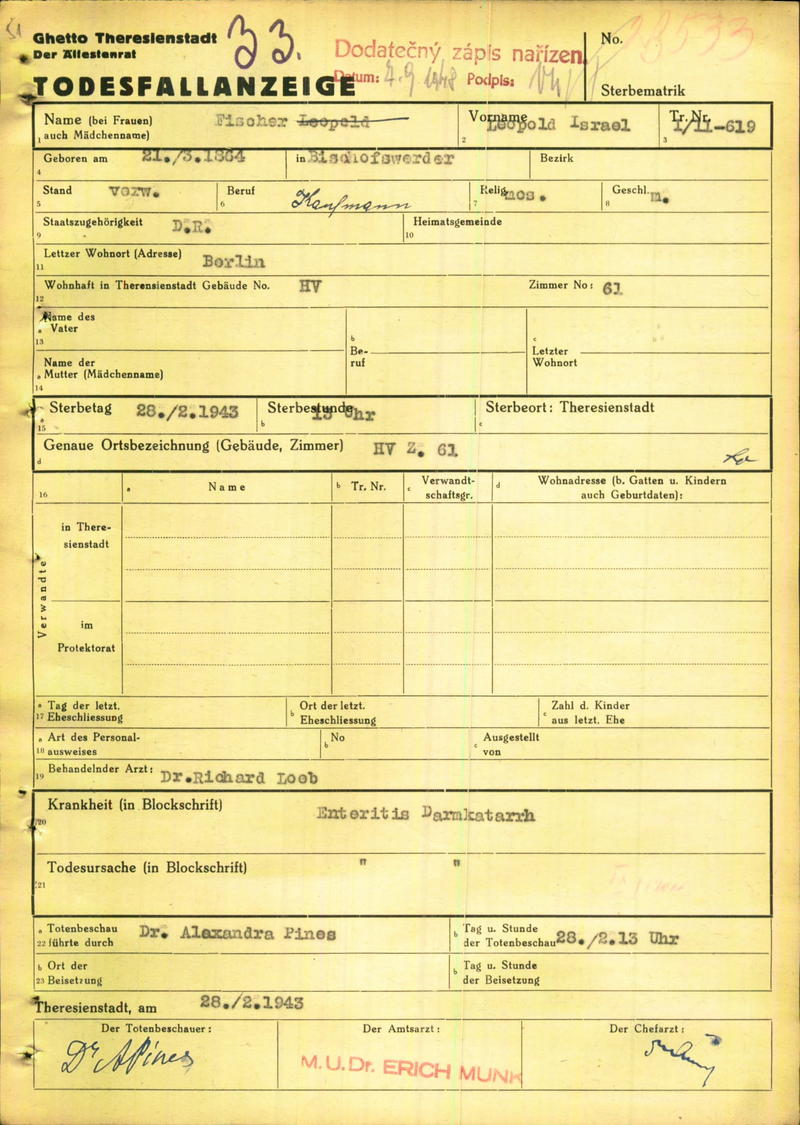 Ghetto Theresienstadt 33. Dodatečný zápis nařízen No.
Der Ältestenrat Datum: Podpis:
TODESFALLANZEIGE Sterbematrik
Name (bei Frauen) Fischer Leopold Vorname Leopold Israel Tr. Nr. I/II-619
1 auch Mädchenname) 2 3
Geboren am 21./3.1864 in Bischofswerder Bezirk
4
Stand verw. Beruf Kaufmann Relig. mos. Geschl. m.
5 6 7 8
Staatszugehörigkeit D.R. Heimatsgemeinde
9 10
Lettzer Wohnort (Adresse) Berlin
11
Wohnhaft in Therensienstadt Gebäude No. HV Zimmer No: 61
12
Name des
a Vater b c
13 Be- Letzter
Name der ruf Wohnort
a Mutter (Mädchenname)
14
a Sterbetag 28./2.1943 Sterbestunde 13 Uhr Sterbeort: Theresienstadt
15 b c
Genaue Ortsbezeichnung (Gebäude, Zimmer) HV Z. 61
d
16 a Name b Tr. Nr. c Verwandt- d Wohnadresse (b. Gatten u. Kindern
schaftsgr. auch Geburtdaten):
Verwandte
in There-
sienstadt
im
Protektorat
a Tag der letzt. b Ort der letzt. c Zahl d. Kinder
17 Eheschliessung Eheschliessung aus letzt. Ehe
a Art des Personal- b No c Ausgestellt
18 ausweises von
19 Behandelnder Arzt: Dr.Richard Loeb
Krankheit (in Blockschrift) Enteritis Darmkatarrh
20
Todesursache (in Blockschrift) " "
21
a Totenbeschau Dr. Alexandra Pines b Tag u. Stunde
22 führte durch der Totenbeschau 28./2.13 Uhr
b Ort der b Tag u. Stunde
23 Beisetzung der Beisetzung
Theresienstadt, am 28./2.1943
Der Totenbeschauer: Der Amtsarzt: Der Chefarzt:
Dr APines M.U.Dr. ERICH MUNK